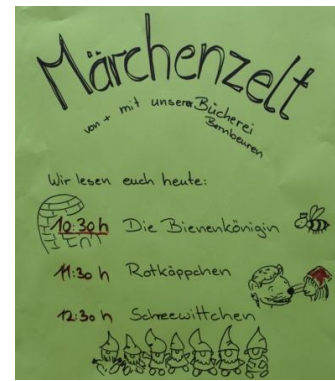 Märchenzelt
von + mit unserer Bücherei
Bernbeuren
Wir lesen euch heute:
10:30 h Die Bienenkönigin
11:30 h Rotkäppchen
12:30 h Schneewittchen